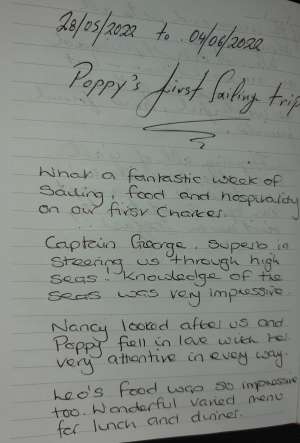 28/05/2022 to 04/06/2022
Poppy's first Sailing trip
What a fantastic week of
Sailing, food and hospitality
on our first Charter.
Captain George. Superb in
steering us through high
seas! Knowledge of the
seas was very impressive.
Nancy looked after us and
Poppy fell in love with her
very attentive in every way.
Leo's food was so impressive
too. Wonderful varied menu
for lunch and dinner.